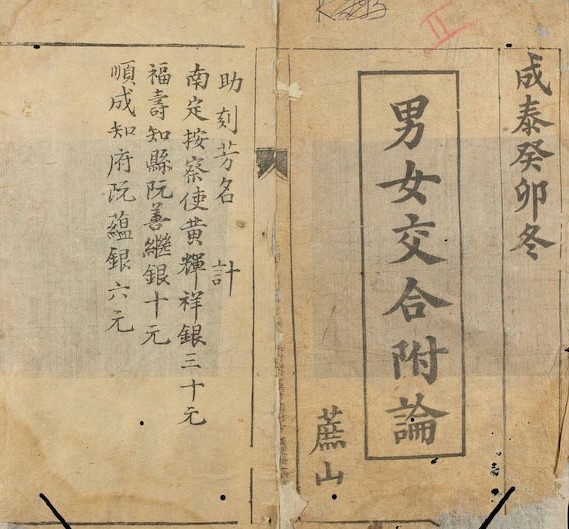 成泰癸卯冬
男女交合附論
蔗山
助刻芳名 計
南定按察使黃輝祥銀三十元
福壽知縣阮善繼銀十元
順成知府阮蘊銀六元
II